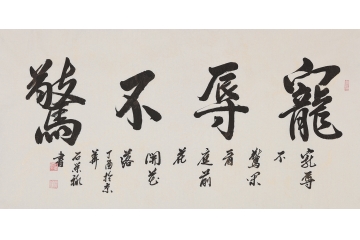 寵辱不驚
寵辱
不
驚閑
看
庭前
花
開花
落
丁酉於京
華
書